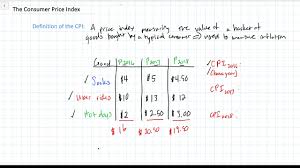 The Consumer Price Index
Definition of the CPI: A price index measuring the value of a basket of
goods bought by a typical consumer ⇒ used to measure inflation
Good P2016 P2017 P2018
Socks $4 $5 $4.50
Uber rides $10 $13 $12
Hot dogs $2 $2.50 $3.00
$16 $20.50 $19.50
CPI2016
(base year)
CPI2017
CPI2018